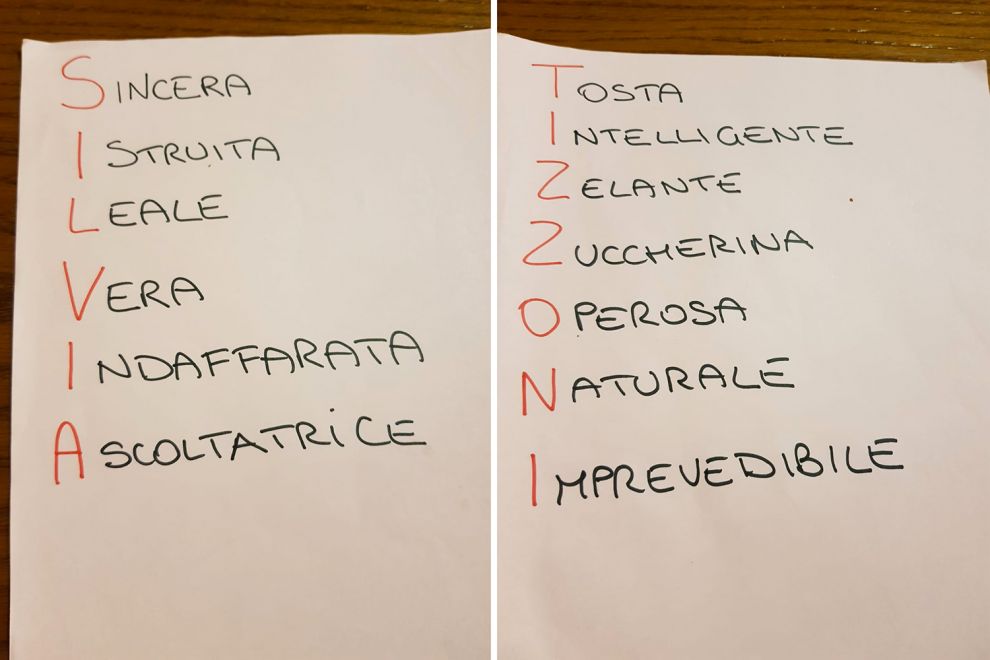 SINCERA
ISTRUITA
LEALE
VERA
INDAFFARATA
ASCOLTATRiCE
TOSTA
INTELLIGENTE
ZELANTE
ZUCCHERINA
OPEROSA
NATURALE
IMPREVEDIBILE